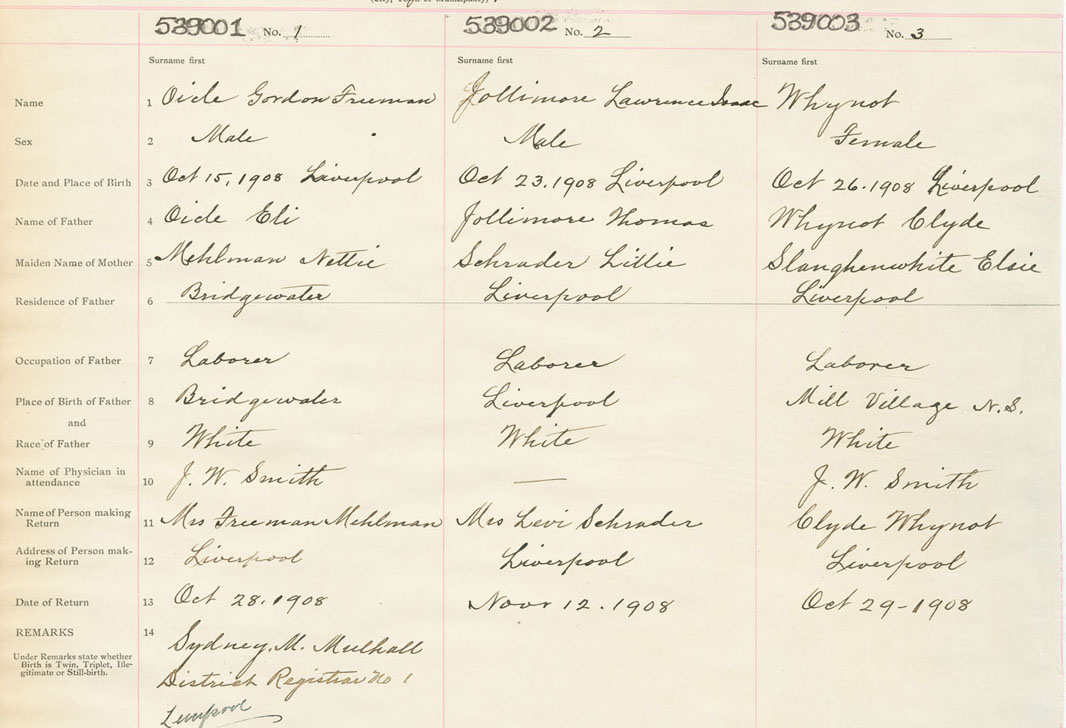 539001 No. 1 539002 No. 2 539003 No. 3
Surname first Surname first Surname first
Name 1 Oicle Gordon Freeman Jollimore Lawrence Isaac Whynot
Sex 2 Male Male Female
Date and Place of Birth 3 Oct 15, 1908 Liverpool Oct 23. 1908 Liverpool Oct 26. 1908 Liverpool
Name of Father 4 Oicle Eli Jollimore Thomas Whynot Clyde
Maiden Name of Mother 5 Mehlman Nettie Schrader Lillie Slaughenwhite Elsie
Residence of Father 6 Bridgewater Liverpool Liverpool
Occupation of Father 7 Laborer Laborer Laborer
Place of Birth of Father 8 Bridgewater Liverpool Mill Village N.S.
and
Race of Father 9 White White White
Name of Physician in
attendance 10 J. W. Smith — J. W. Smith
Name of Person making
Return 11 Mrs Freeman Mehlman Mrs Levi Schrader Clyde Whynot
Address of Person mak-
ing Return 12 Liverpool Liverpool Liverpool
Date of Return 13 Oct 28. 1908 Novr 12. 1908 Oct 29-1908
REMARKS 14
Under Remarks state whether
Birth is Twin, Triplet, Ille-
gitimate or Still-birth.
Sydney. M. Mulhall
District Registrar No 1
Liverpool